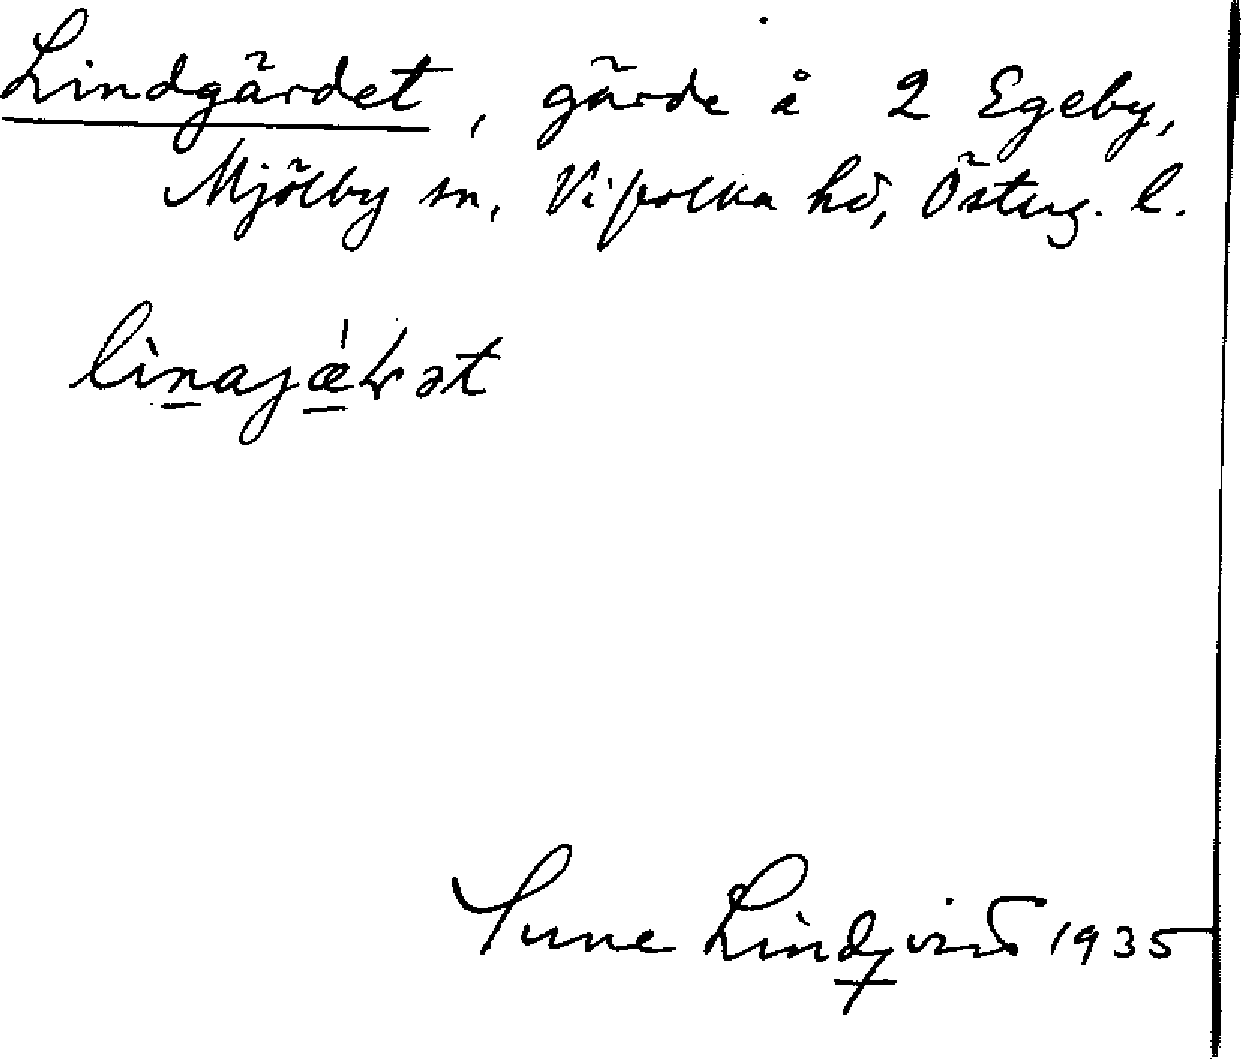 Lindgärdet, gärde å 2 Egeby,
Mjölby sn, Vifolka hd, Österg. l.
Sune Lindqvist 1935